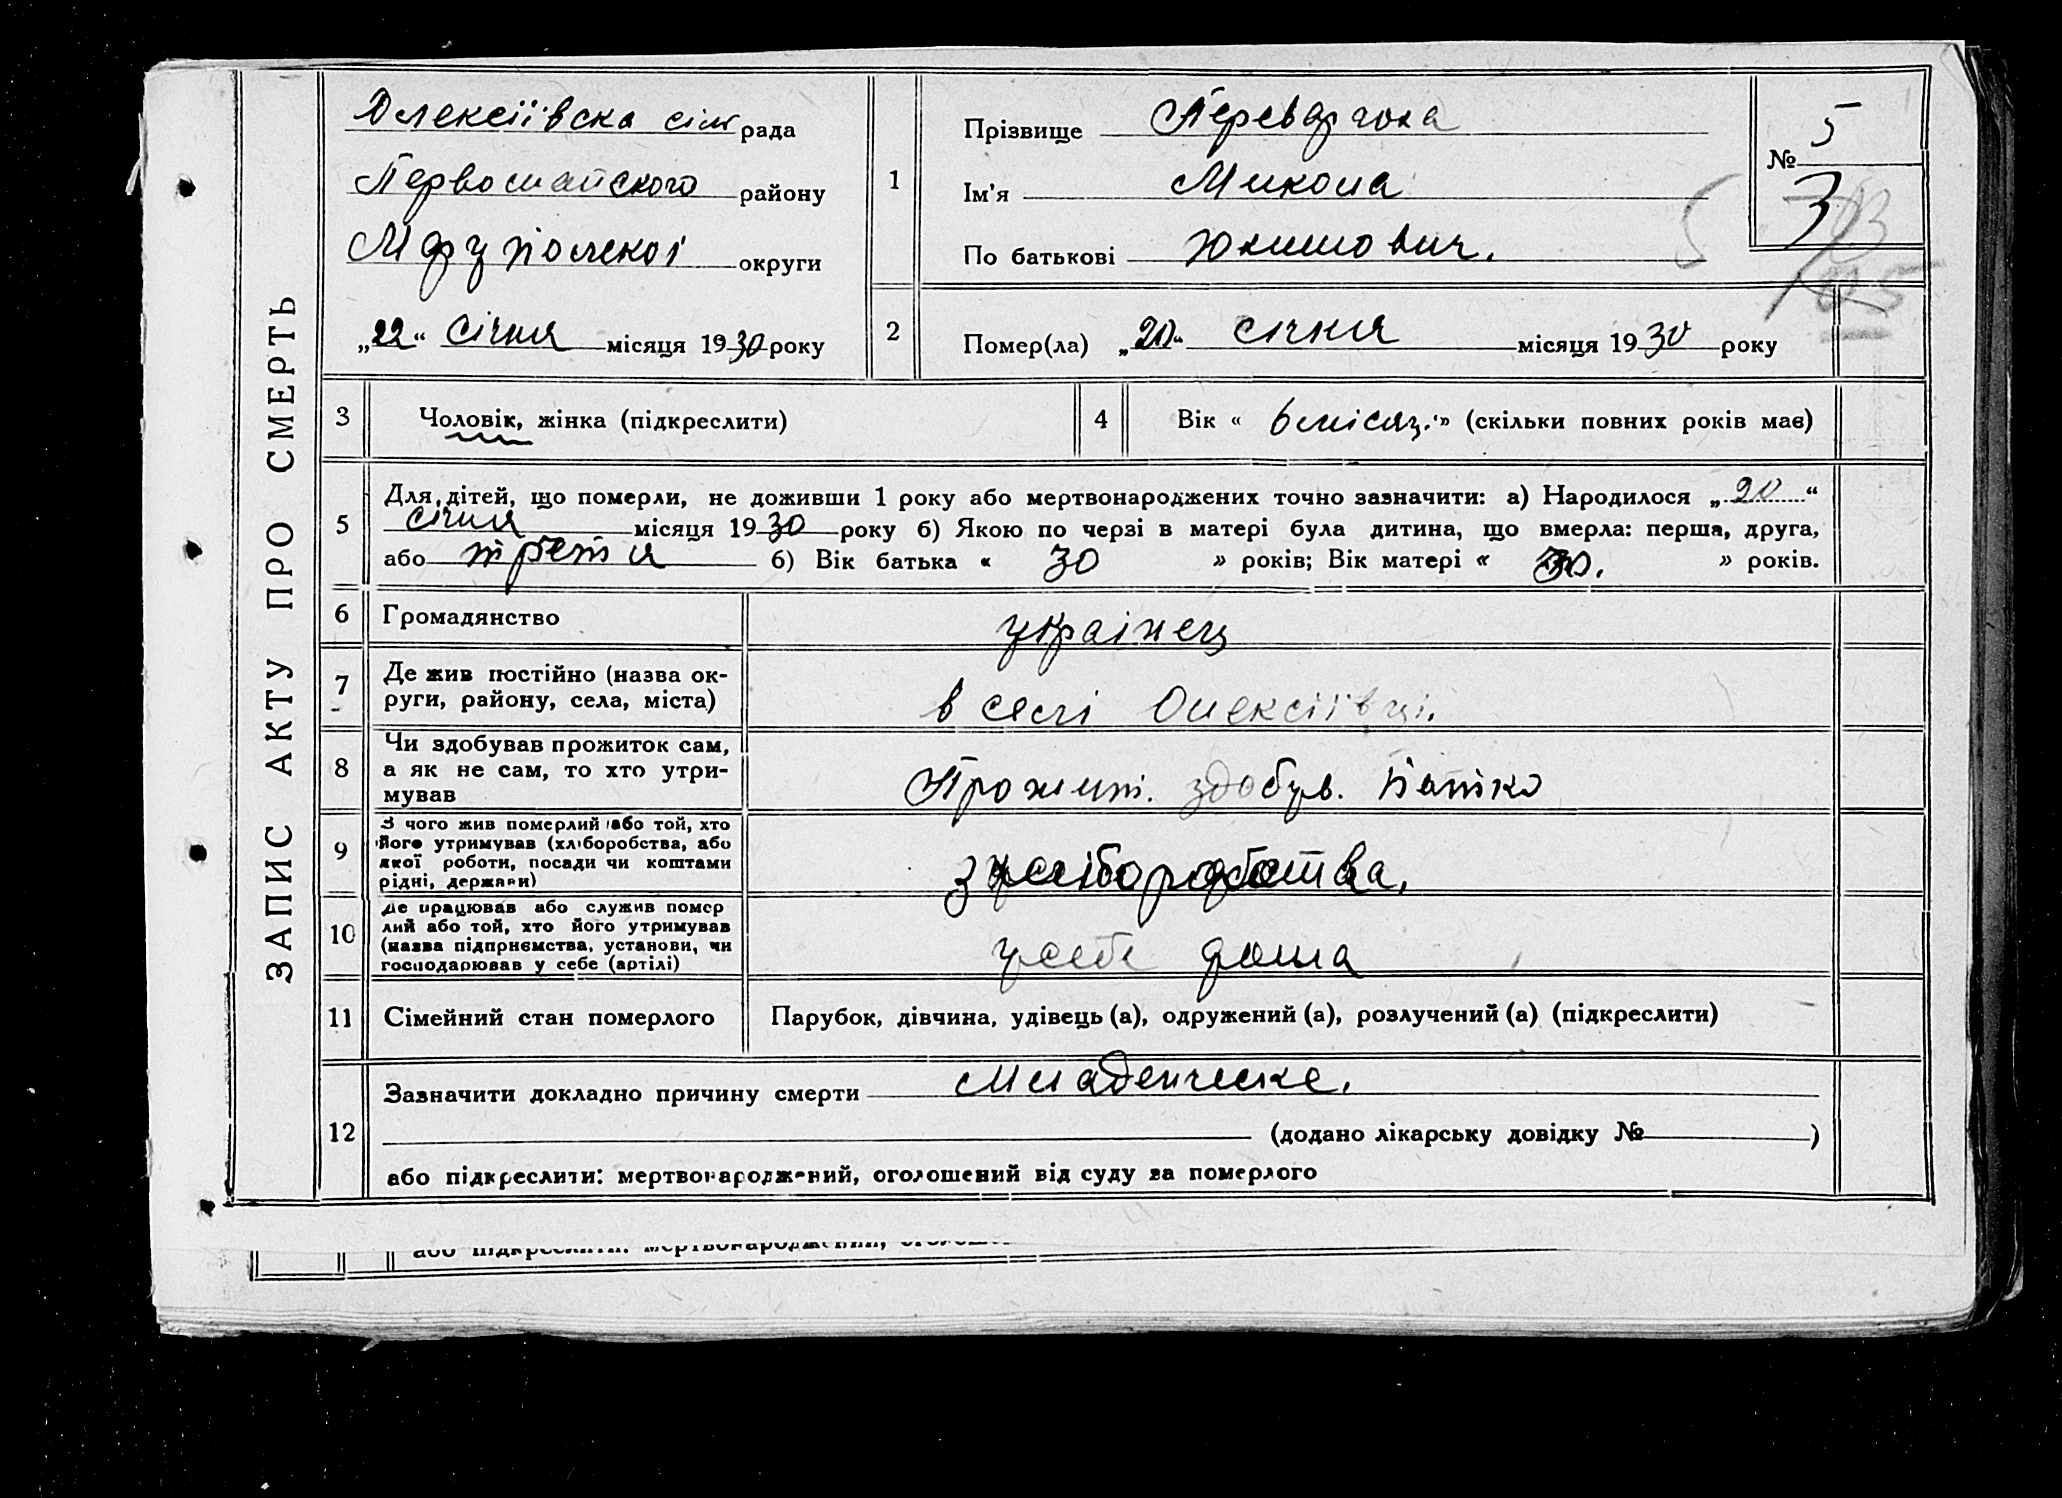 ЗАПИС АКТУ ПРО СМЕРТЬ
Олексіївска сіл рада
Первомайского району
Маруполскої округи
„22“ січня місяця 1930 року
1
Прізвище
Ім'я Микола
По батькові Юхимович.
№ 5
3
2
Помер(ла) „20“ січня місяця 1930 року
3
Чоловік, жінка (підкреслити)
4
Вік « 6 місяц. » (скільки повних років має)
5
Для дітей, що померли, не доживши 1 року або мертвонароджених точно зазначити: а) Народилося „20“
січня місяця 1930 року б) Якою по черзі в матері була дитина, що вмерла: перша, друга,
або третя б) Вік батька « 30 » років; Вік матері « 30. » років.
6
Громадянство
українец
7
Де жив постійно (назва ок-
руги, району, села, міста)
в селі Олексіївці.
8
Чи здобував прожиток сам,
а як не сам, то хто утри-
мував
Прожит. здобув. батько
9
З чого жив померлий або той, хто
його утримував (хліборобства, або
якої роботи, посади чи коштами
рідні, держави)
з хліборобства.
10
Де працював або служив помер
лий або той, хто його утримував
(назва підприємства, установи, чи
господарював у себе (артілі)
у себе дома
11
Сімейний стан померлого
Парубок, дівчина, удівець (а), одружений (а), розлучений (а) (підкреслити)
12
Зазначити докладно причину смерти Младенческе.
(додано лікарську довідку № )
або підкреслити: мертвонароджений, оголошений від суду за померлого
або підкреслити: мертвонароджений,